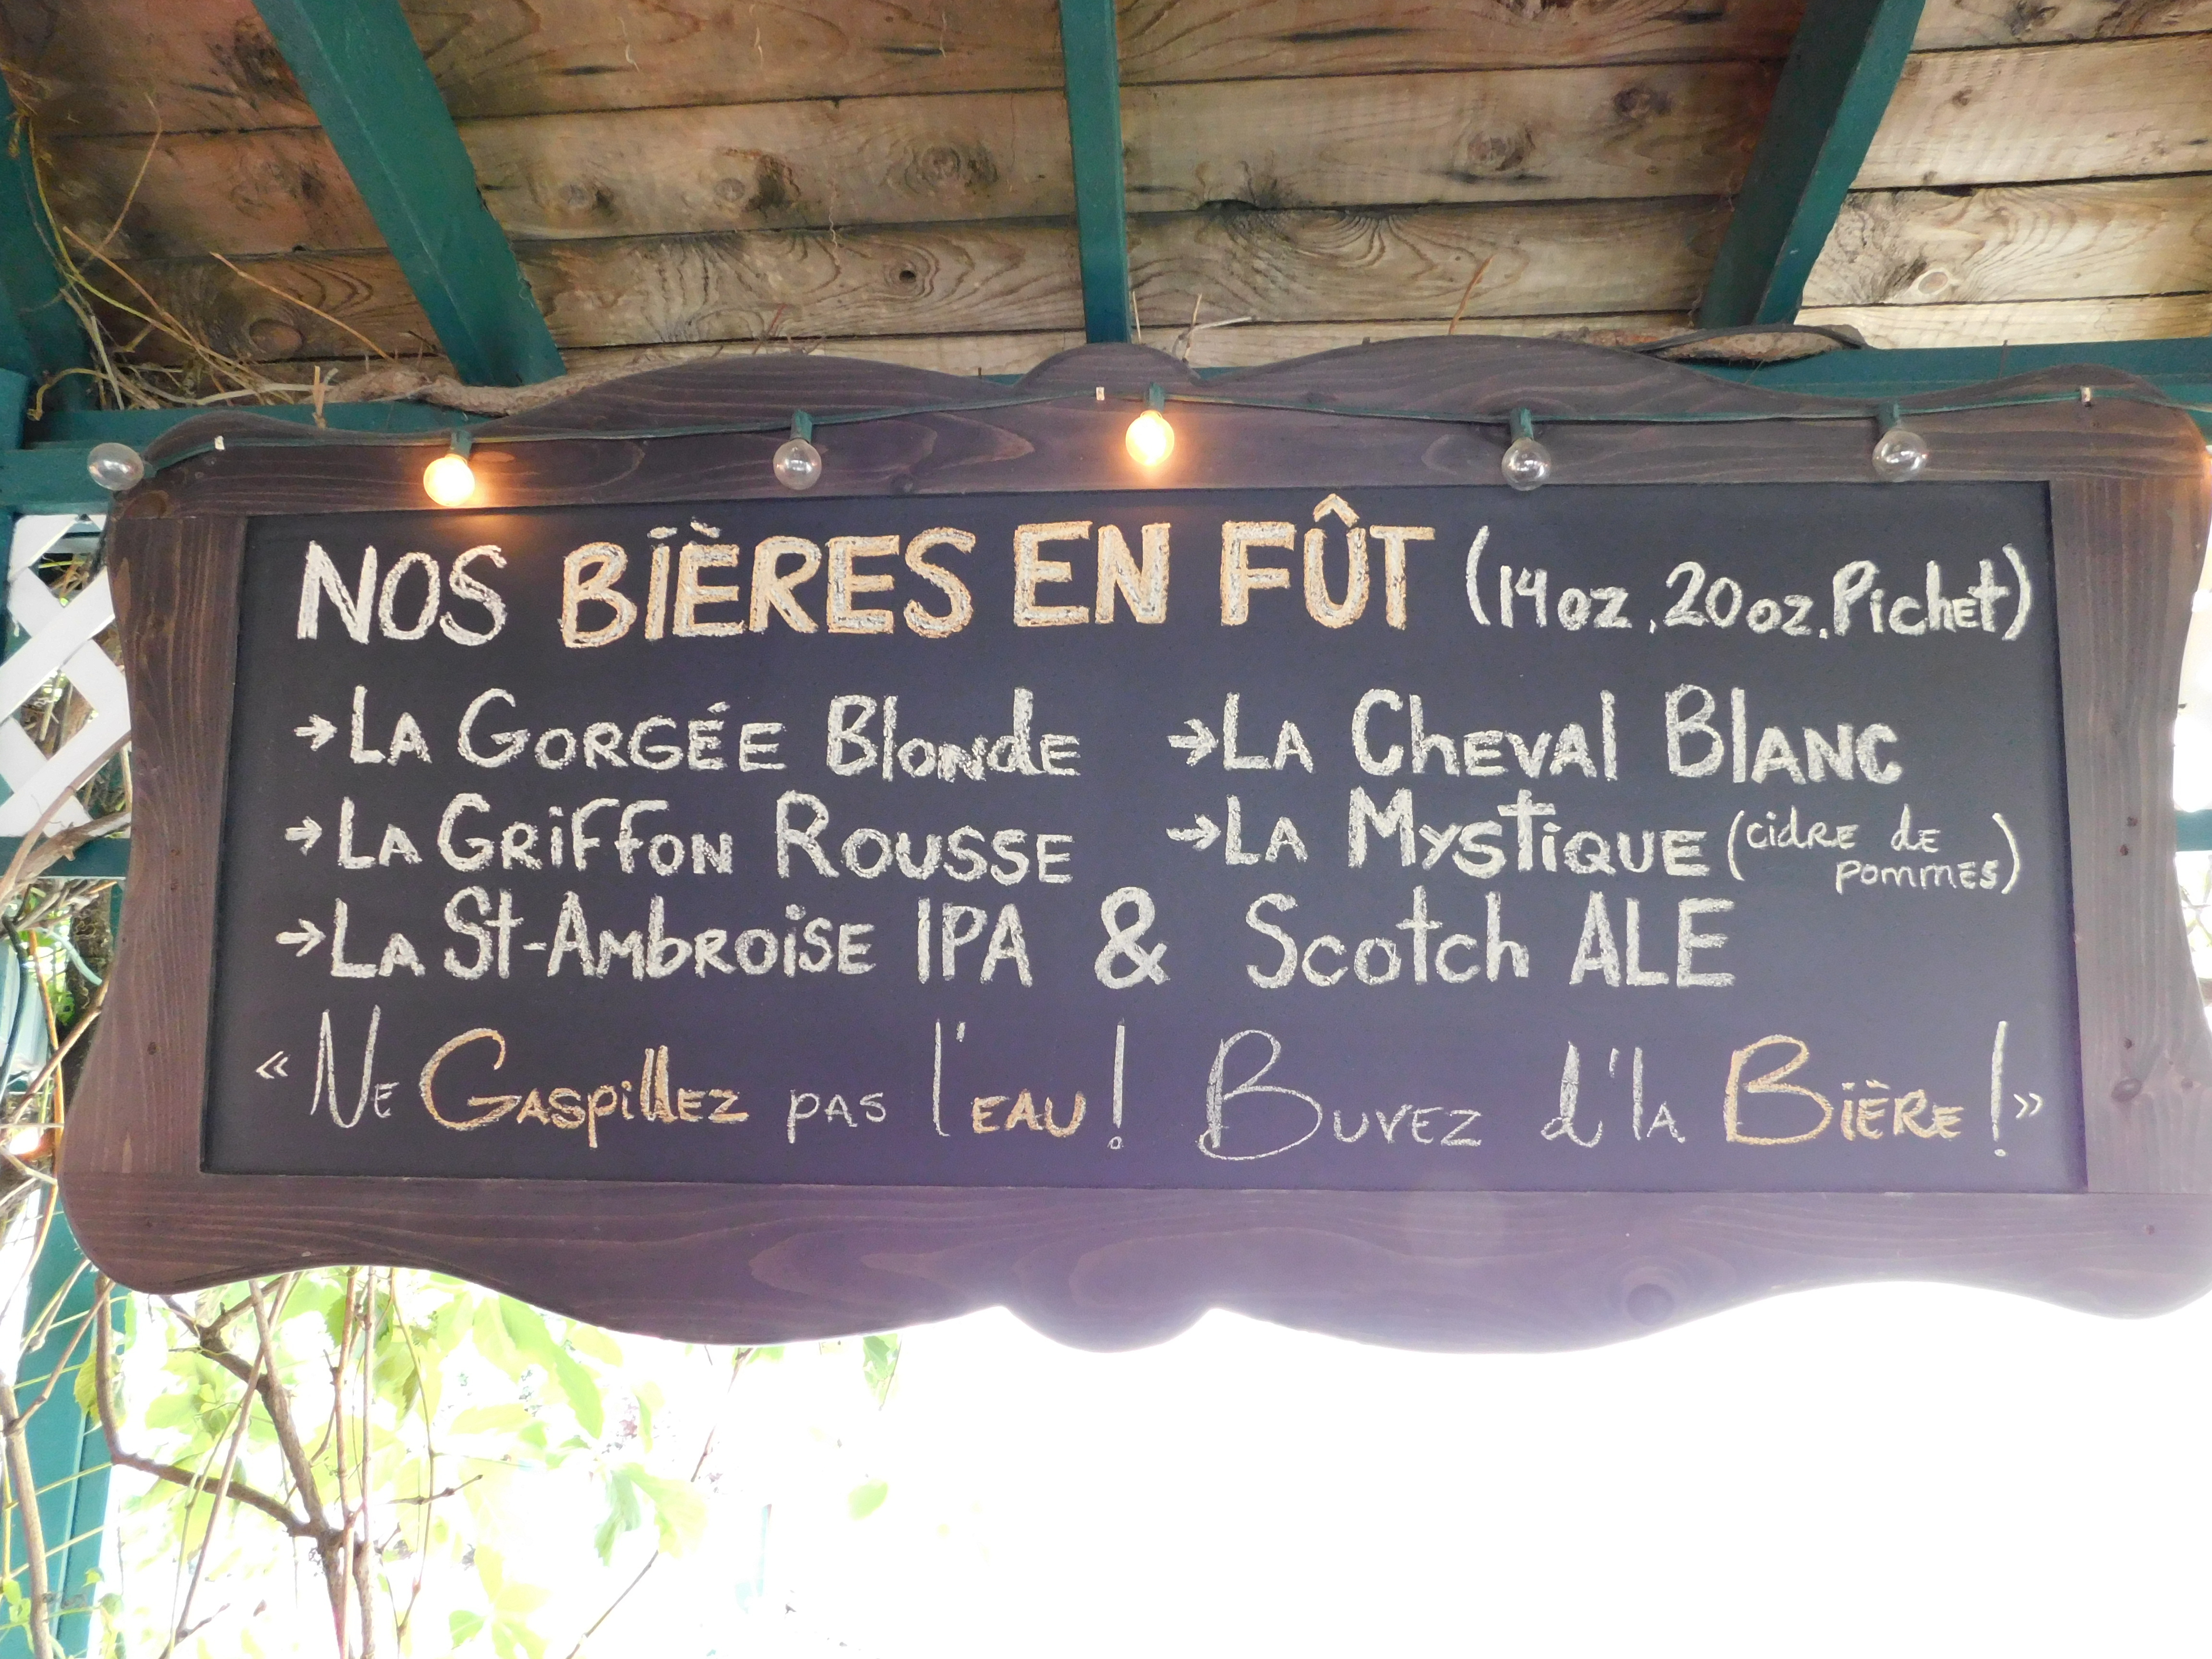 NOS BIÈRES EN FÛT (14oz, 20oz, Pichet)
→LA GORGÉE Blonde →LA Cheval Blanc
→LA GRiffon Rousse →LA Mystique (cidre de pommes)
→LA St-Ambroise IPA & Scotch ALE
« Ne Gaspillez pas l'eau! Buvez d'la Bière! »